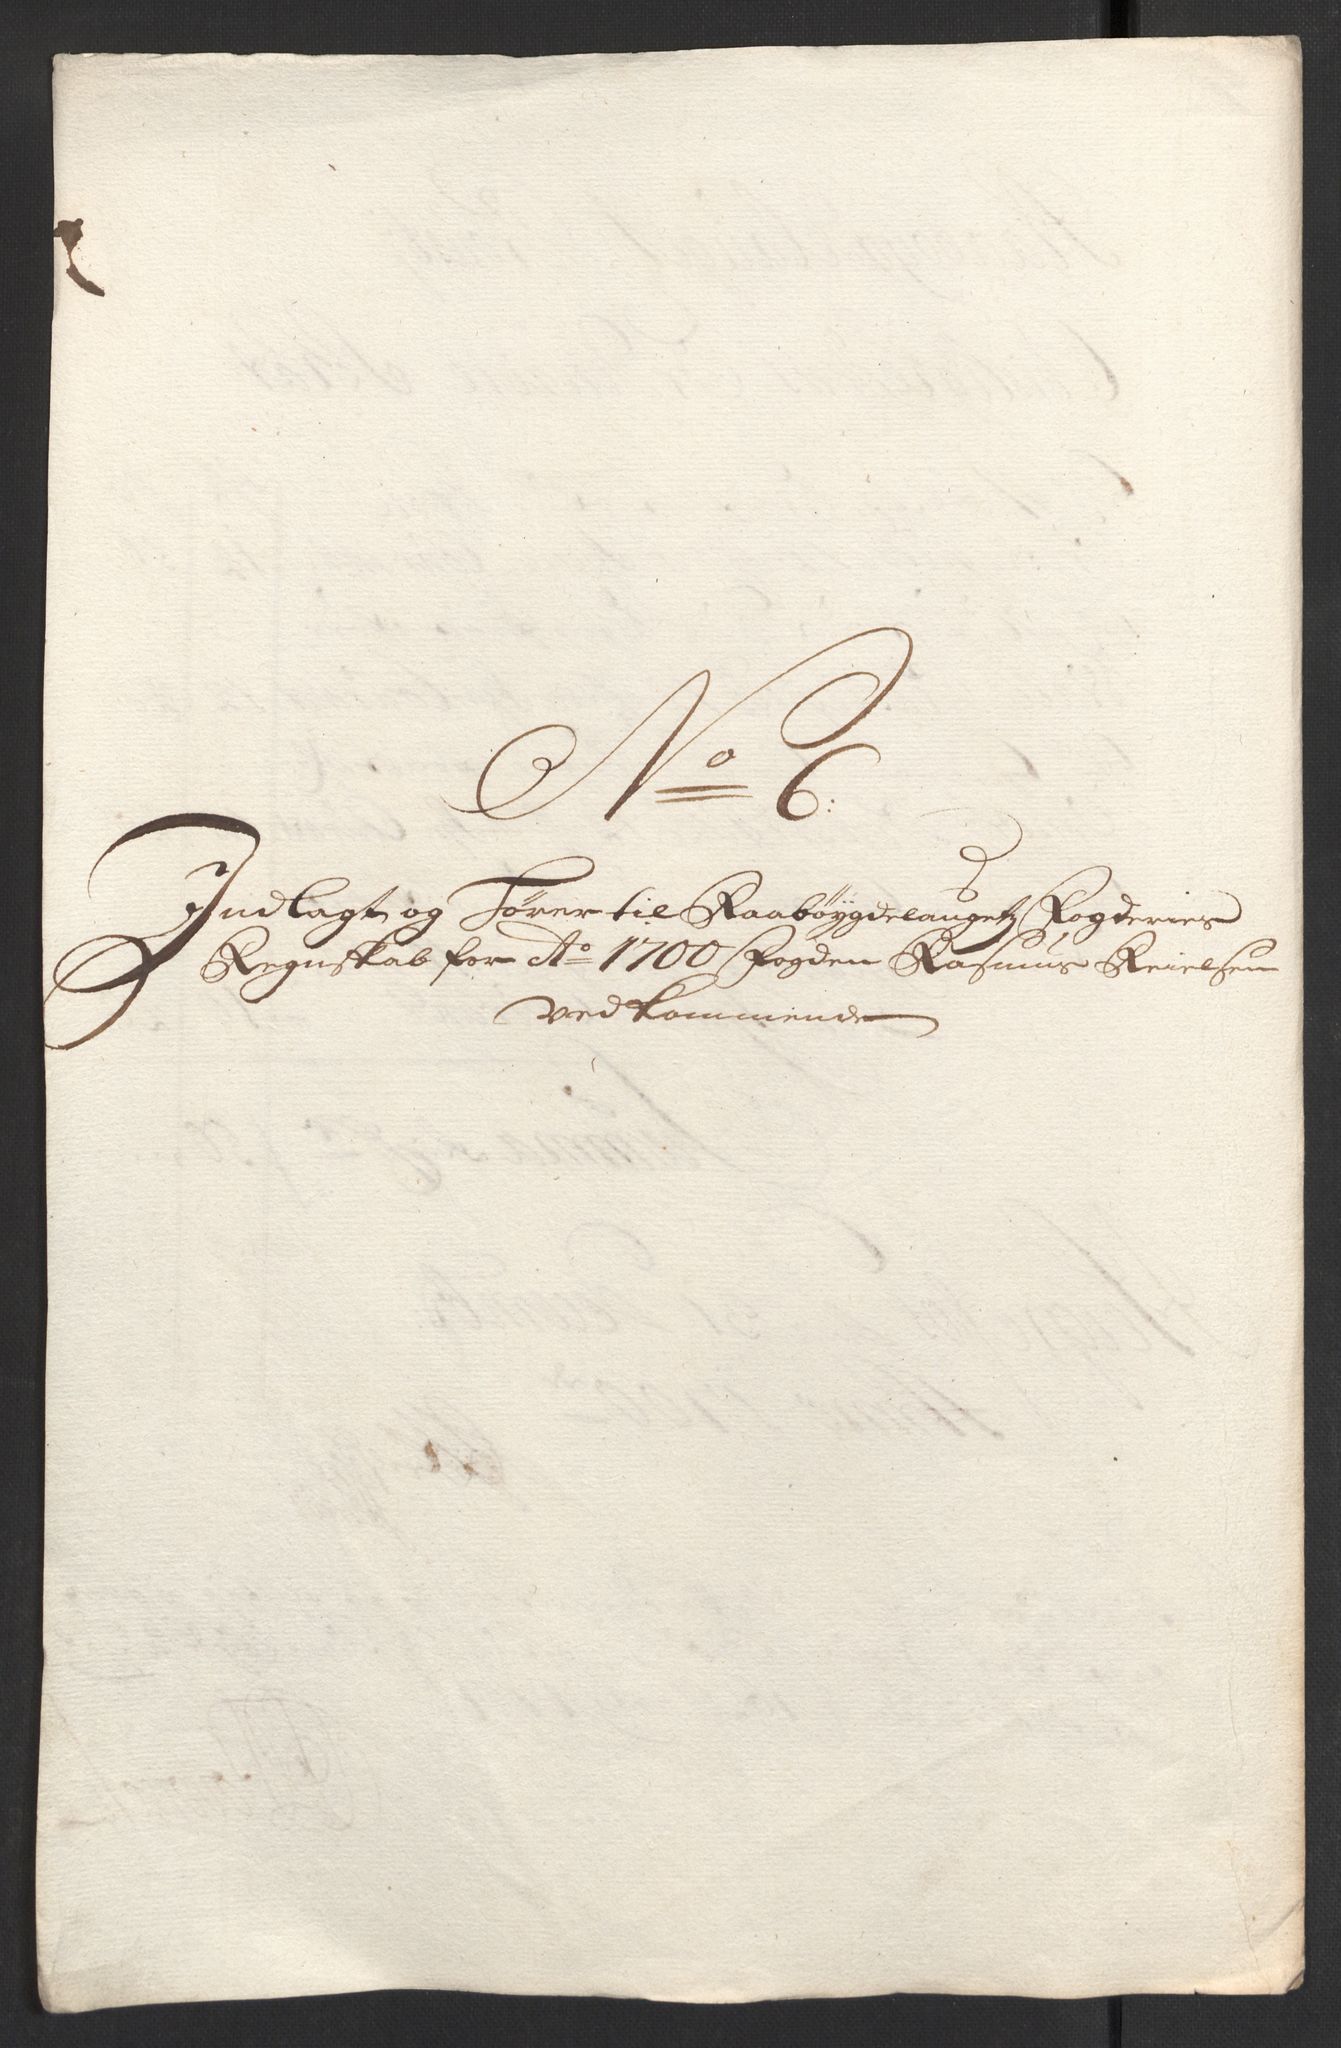 No 6:
Indlagt og Hører til Raabøygdelaugetz Fogderies
Regnskab for Ao 1700 Fogden Rasmus Reielsen
vedkommende